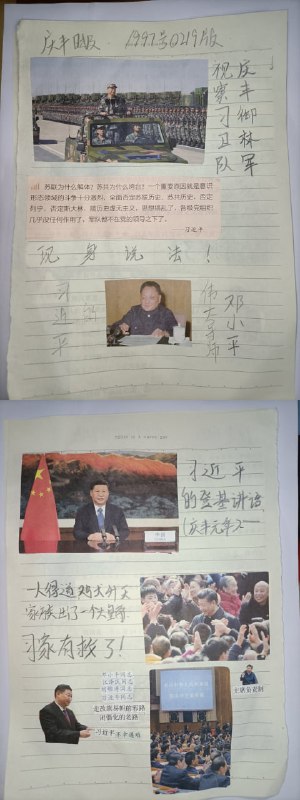 庆丰日报 1997号0219版
庆丰御林军
视察习卫队
苏联为什么解体？苏共为什么垮台？一个重要原因就是意识
形态领域的斗争十分激烈，全面否定苏联历史、苏共历史，否定
列宁，否定斯大林，搞历史虚无主义，思想搞乱了，各级党组织
几乎没任何作用了，军队都不在党的领导之下了。
——习近平
现身说法！
习近平
的
伟大导师
邓小平
习近平
的登基讲话
(庆丰元年)——
中国
一人得道鸡犬升天
家族出了一个
习家有救了！
邓小平同志
江泽民同志
胡锦涛同志
习近平同志
走改旗易帜的邪路
闭僵化的老路